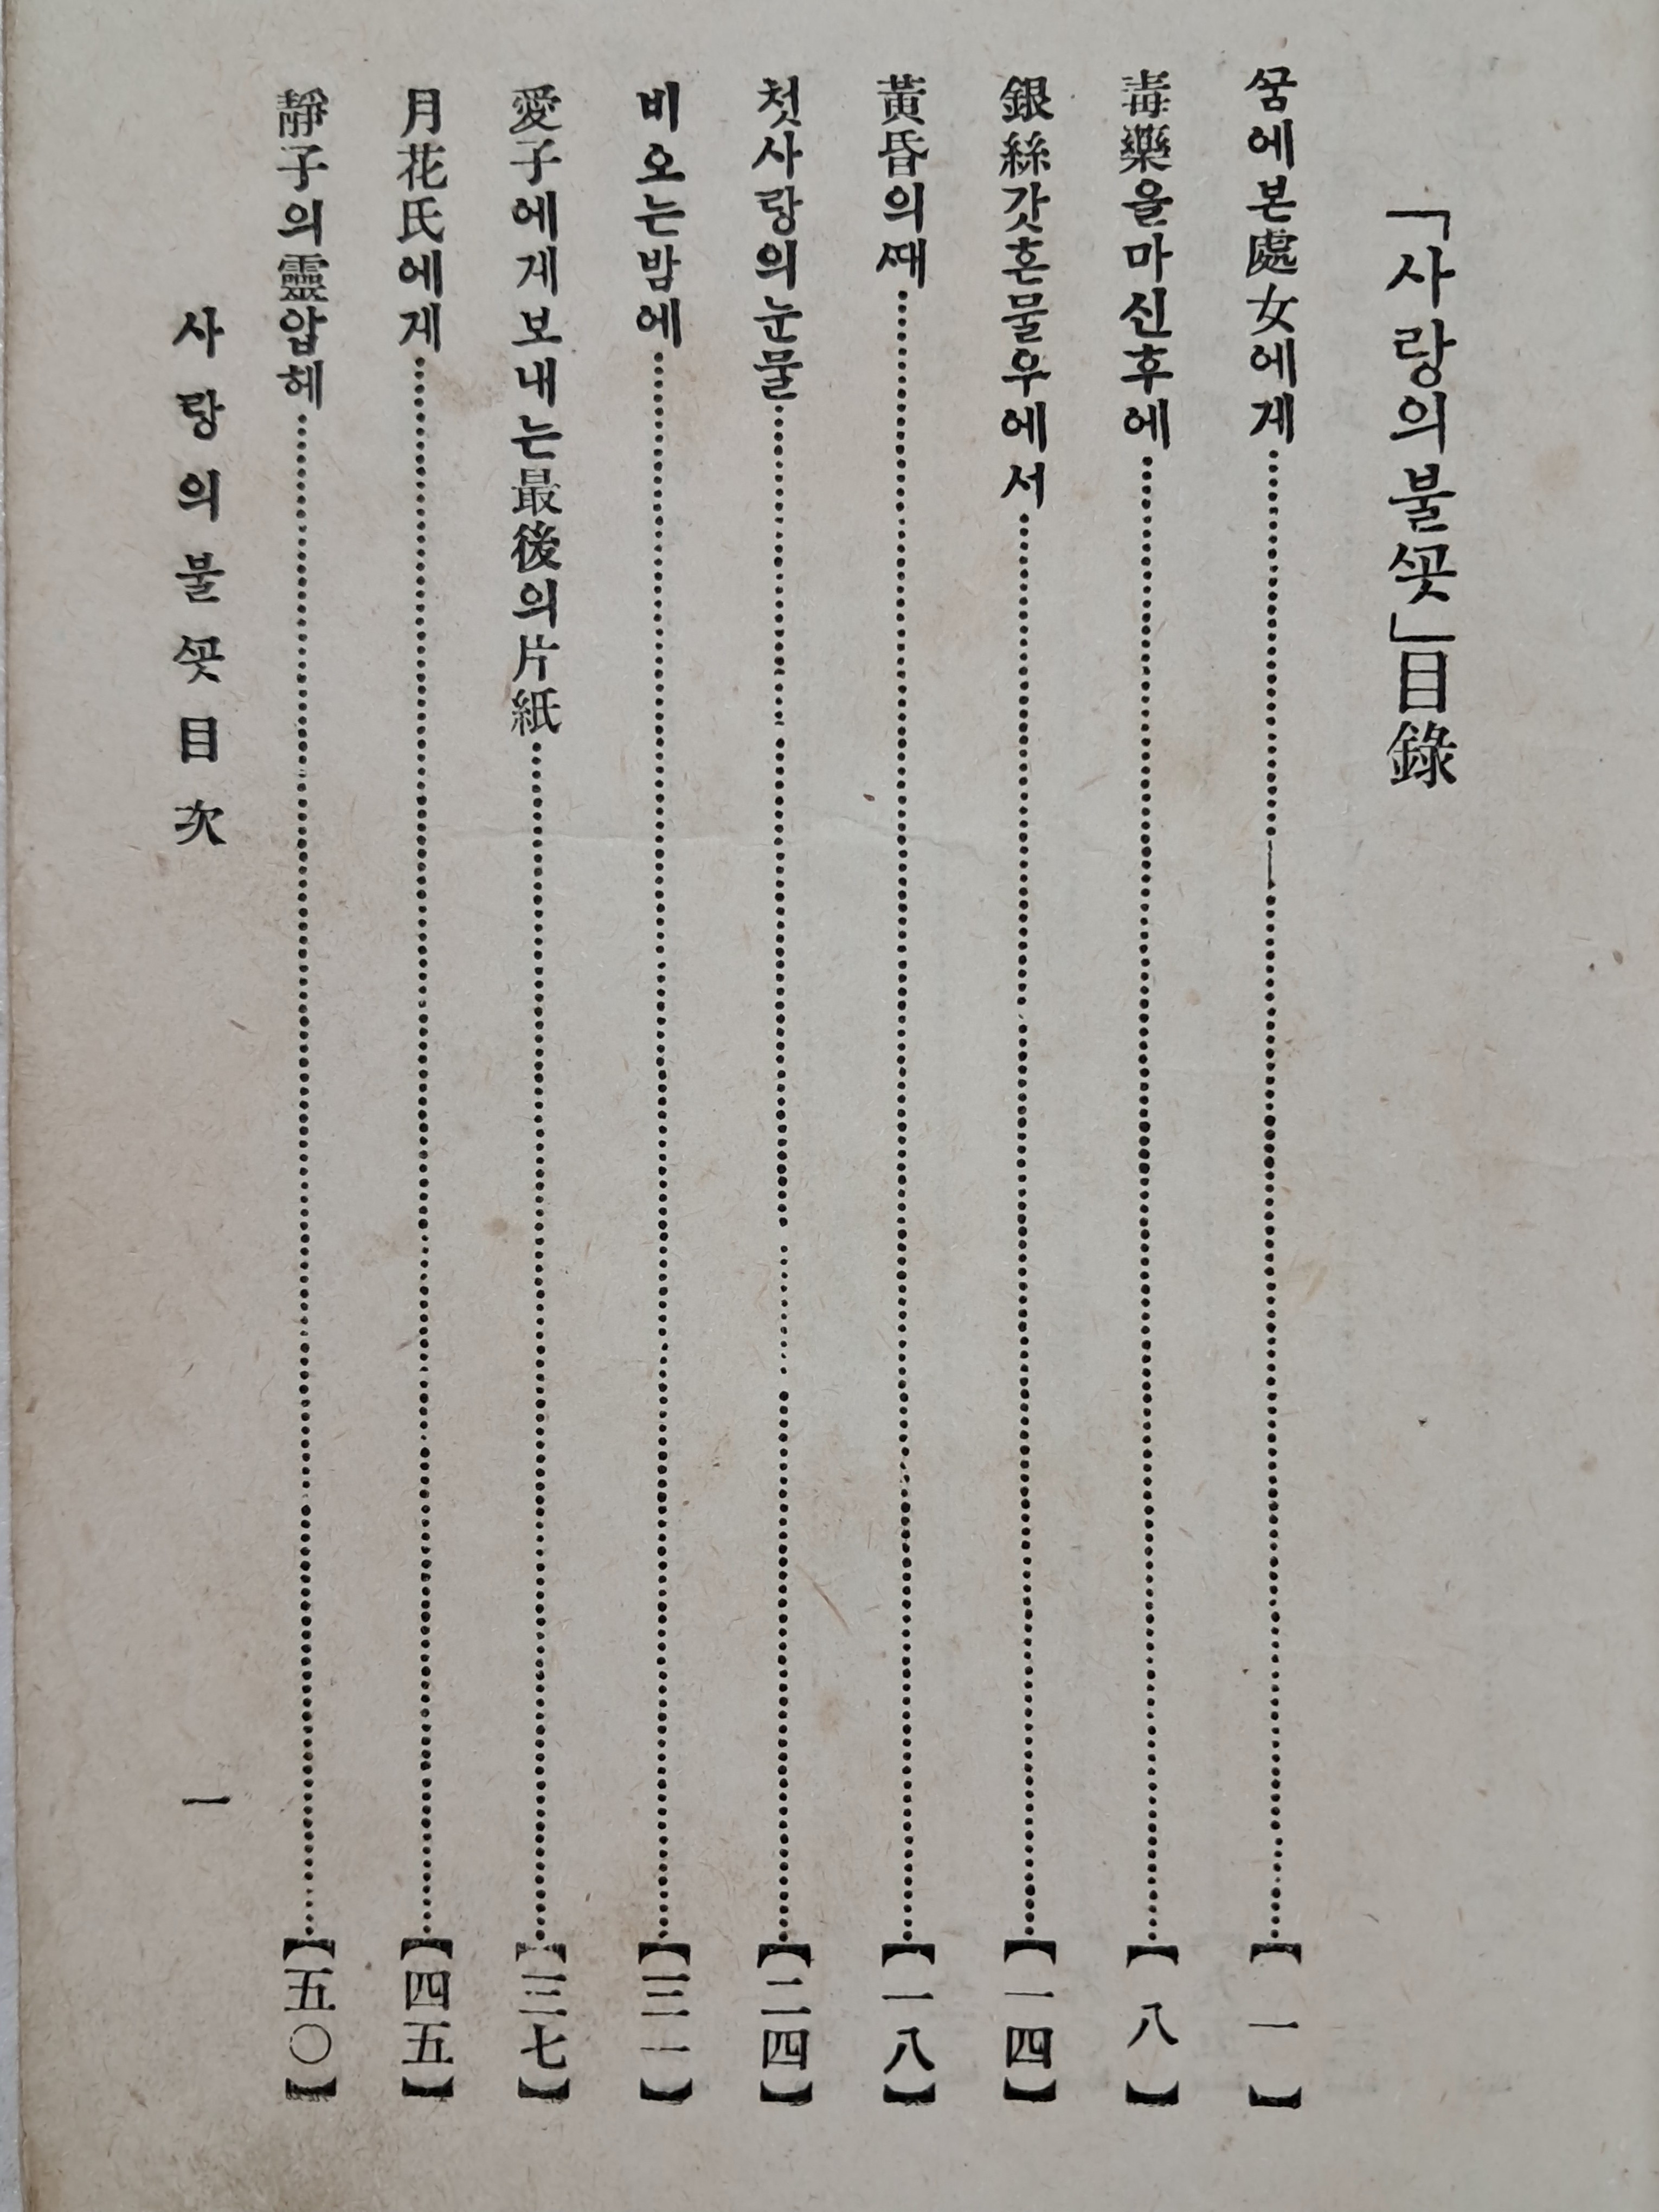 「사랑의불ᄭᅩᆺ」目錄
ᄭᅮᆷ에본處女에게……【一】
毒藥을마신후에……【八】
銀絲갓흔물우에서……【一四】
黃昏의ᄯᅢ……【一八】
첫사랑의눈물……【二四】
비오는밤에……【三一】
愛子에게보내는最後의片紙……【三七】
月花氏에게……【四五】
靜子의靈압헤……【五〇】
사랑의불ᄭᅩᆺ目次 一